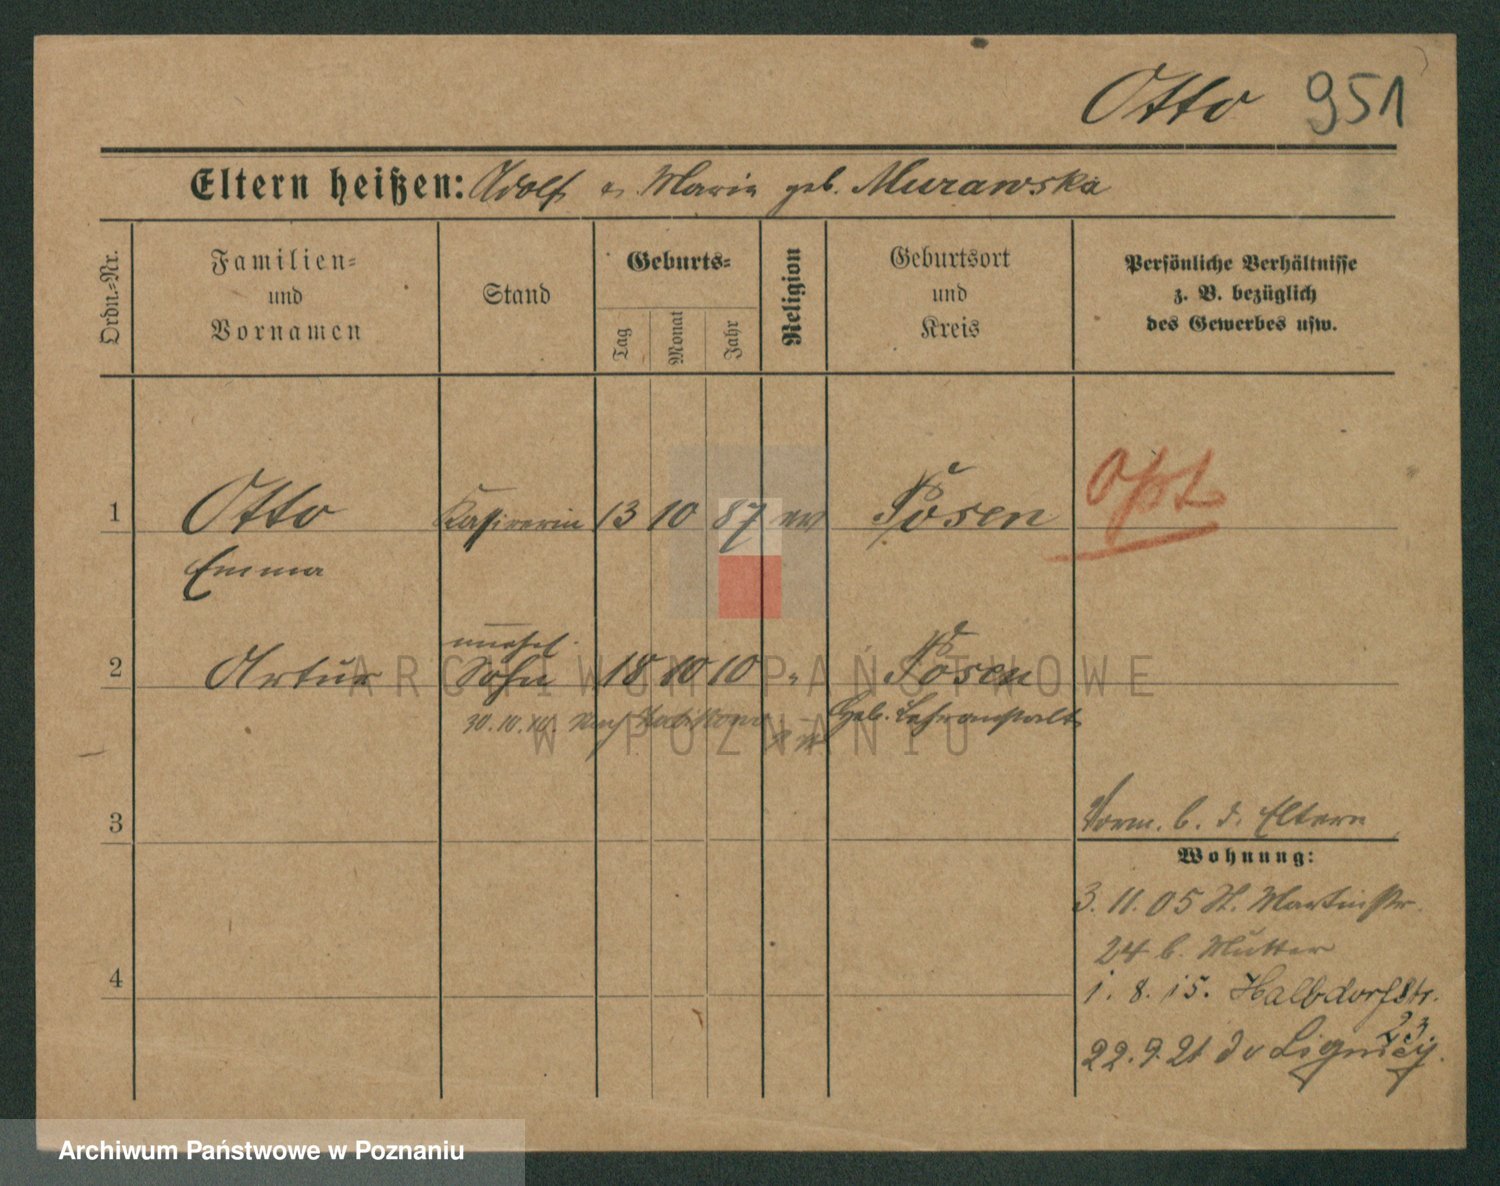 Otto 951
Eltern heißen: Adolf u. Maria geb. Murawska
Ordn.=Nr.
Familien=
und
Vornamen
Stand
Geburts=
Tag
Monat
Jahr
Religion
Geburtsort
und
Kreis
Persönliche Verhältnisse
z. B. bezüglich
des Gewerbes usw.
1 Otto Kassirerin 13 10 87 ev Posen Opt
Emma
unehel.
2 Artur Sohn 18 10 10 " Posen
30.10.10. Geb. Lehranstalt
3
Vorm. b. d. Eltern
Wohnung:
3. 11. 05 St. Martinstr.
24 b. Mutter
4
1. 8. 15. Halbdorfstr.
23.
22. 9. 21
ARCHIWUM PAŃSTWOWE
W POZNANIU
Archiwum Państwowe w Poznaniu